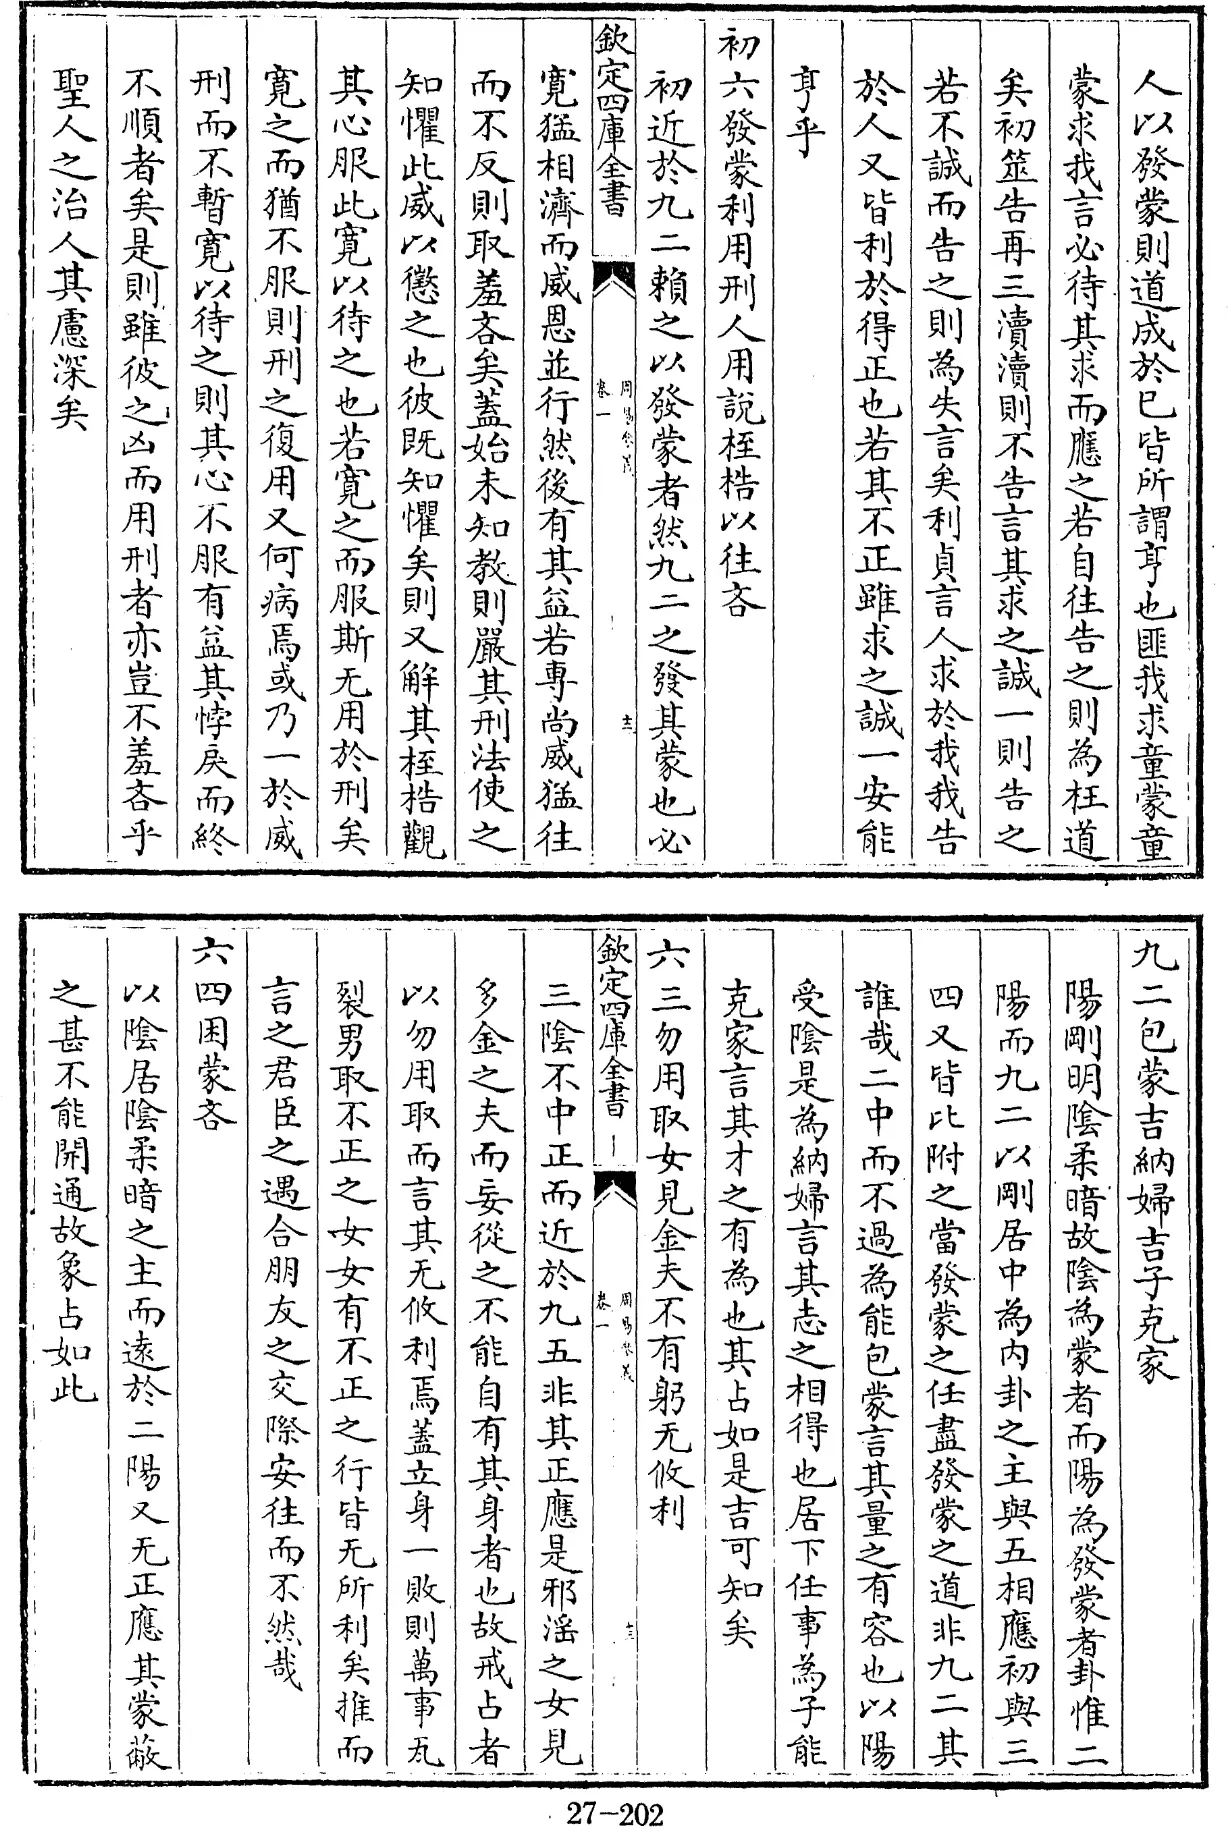 人以發蒙則道成於已皆所謂亨也匪我求童蒙童
蒙求我言必待其求而應之若自往告之則為枉道
矣初筮告再三瀆瀆則不告言其求之誠一則告之
若不誠而告之則為失言矣利貞言人求於我我告
於人又皆利於得正也若其不正雖求之誠一安能
亨乎
初六發蒙利用刑人用說桎梏以往吝
初近於九二賴之以發蒙者然九二之發其蒙也必
欽定四庫全書
周易參義
卷一
十二
寛猛相濟而威恩並行然後有其益若專尚威猛往
而不反則取羞吝矣蓋始未知教則嚴其刑法使之
知懼此威以懲之也彼既知懼矣則又解其桎梏觀
其心服此寛以待之也若寛之而服斯无用於刑矣
寛之而猶不服則刑之復用又何病焉或乃一於威
刑而不暫寛以待之則其心不服有益其悖戾而終
不順者矣是則雖彼之凶而用刑者亦豈不羞吝乎
聖人之治人其慮深矣
九二包蒙吉納婦吉子克家
陽剛明陰柔暗故陰為蒙者而陽為發蒙者卦惟二
陽而九二以剛居中為内卦之主與五相應初與三
四又皆比附之當發蒙之任盡發蒙之道非九二其
誰哉二中而不過為能包蒙言其量之有容也以陽
受陰是為納婦言其志之相得也居下任事為子能
克家言其才之有為也其占如是吉可知矣
六三勿用取女見金夫不有躬无攸利
欽定四庫全書
周易參義
卷一
十三
三陰不中正而近於九五非其正應是邪滛之女見
多金之夫而妄從之不能自有其身者也故戒占者
以勿用取而言其无攸利焉蓋立身一敗則萬事瓦
裂男取不正之女女有不正之行皆无所利矣推而
言之君臣之遇合朋友之交際安往而不然哉
六四困蒙吝
以陰居陰柔暗之主而逺於二陽又无正應其蒙蔽
之甚不能開通故象占如此
27-202